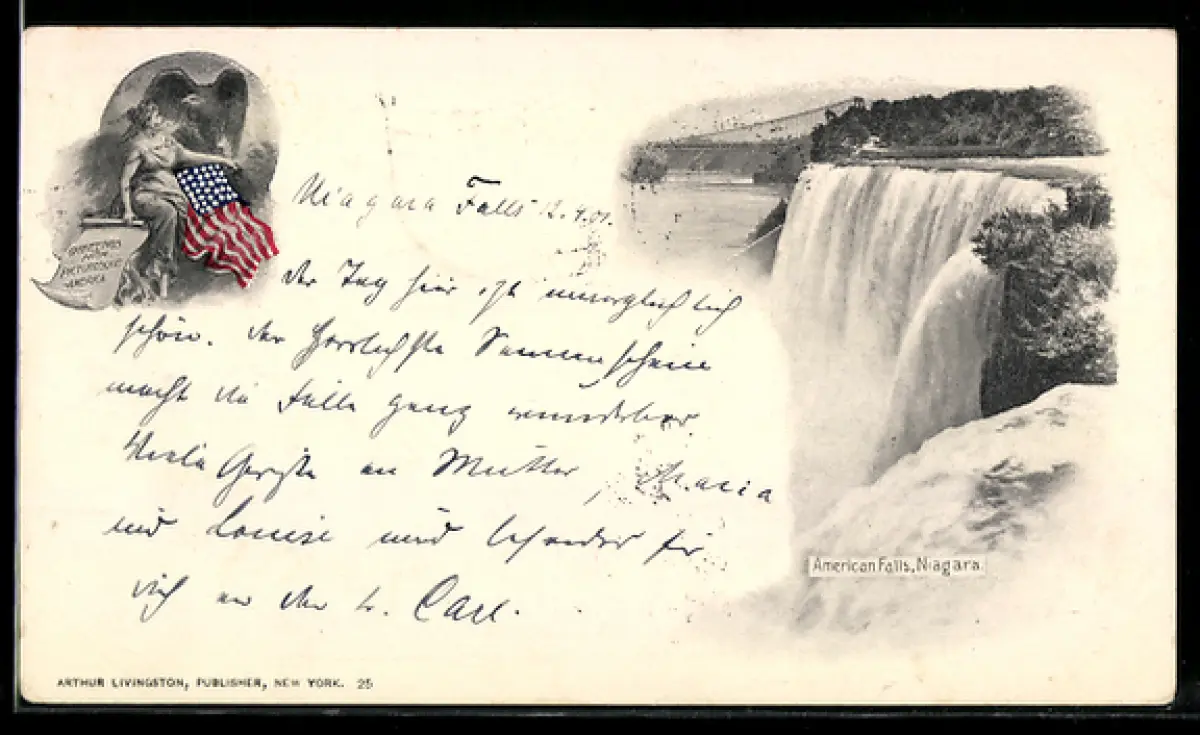 GREETINGS
FROM
PICTURESQUE
AMERICA
Niagara Falls 12.4.01.
der Tag hier ist unvergleichlich
schön. Der herrlichste Sonnenschein
macht die Fälle ganz wunderbar.
Viele Grüße an Mutter, Maria
und Louise und besonders für
dich an den l. Carl.
American Falls, Niagara.
ARTHUR LIVINGSTON, PUBLISHER, NEW YORK. 25